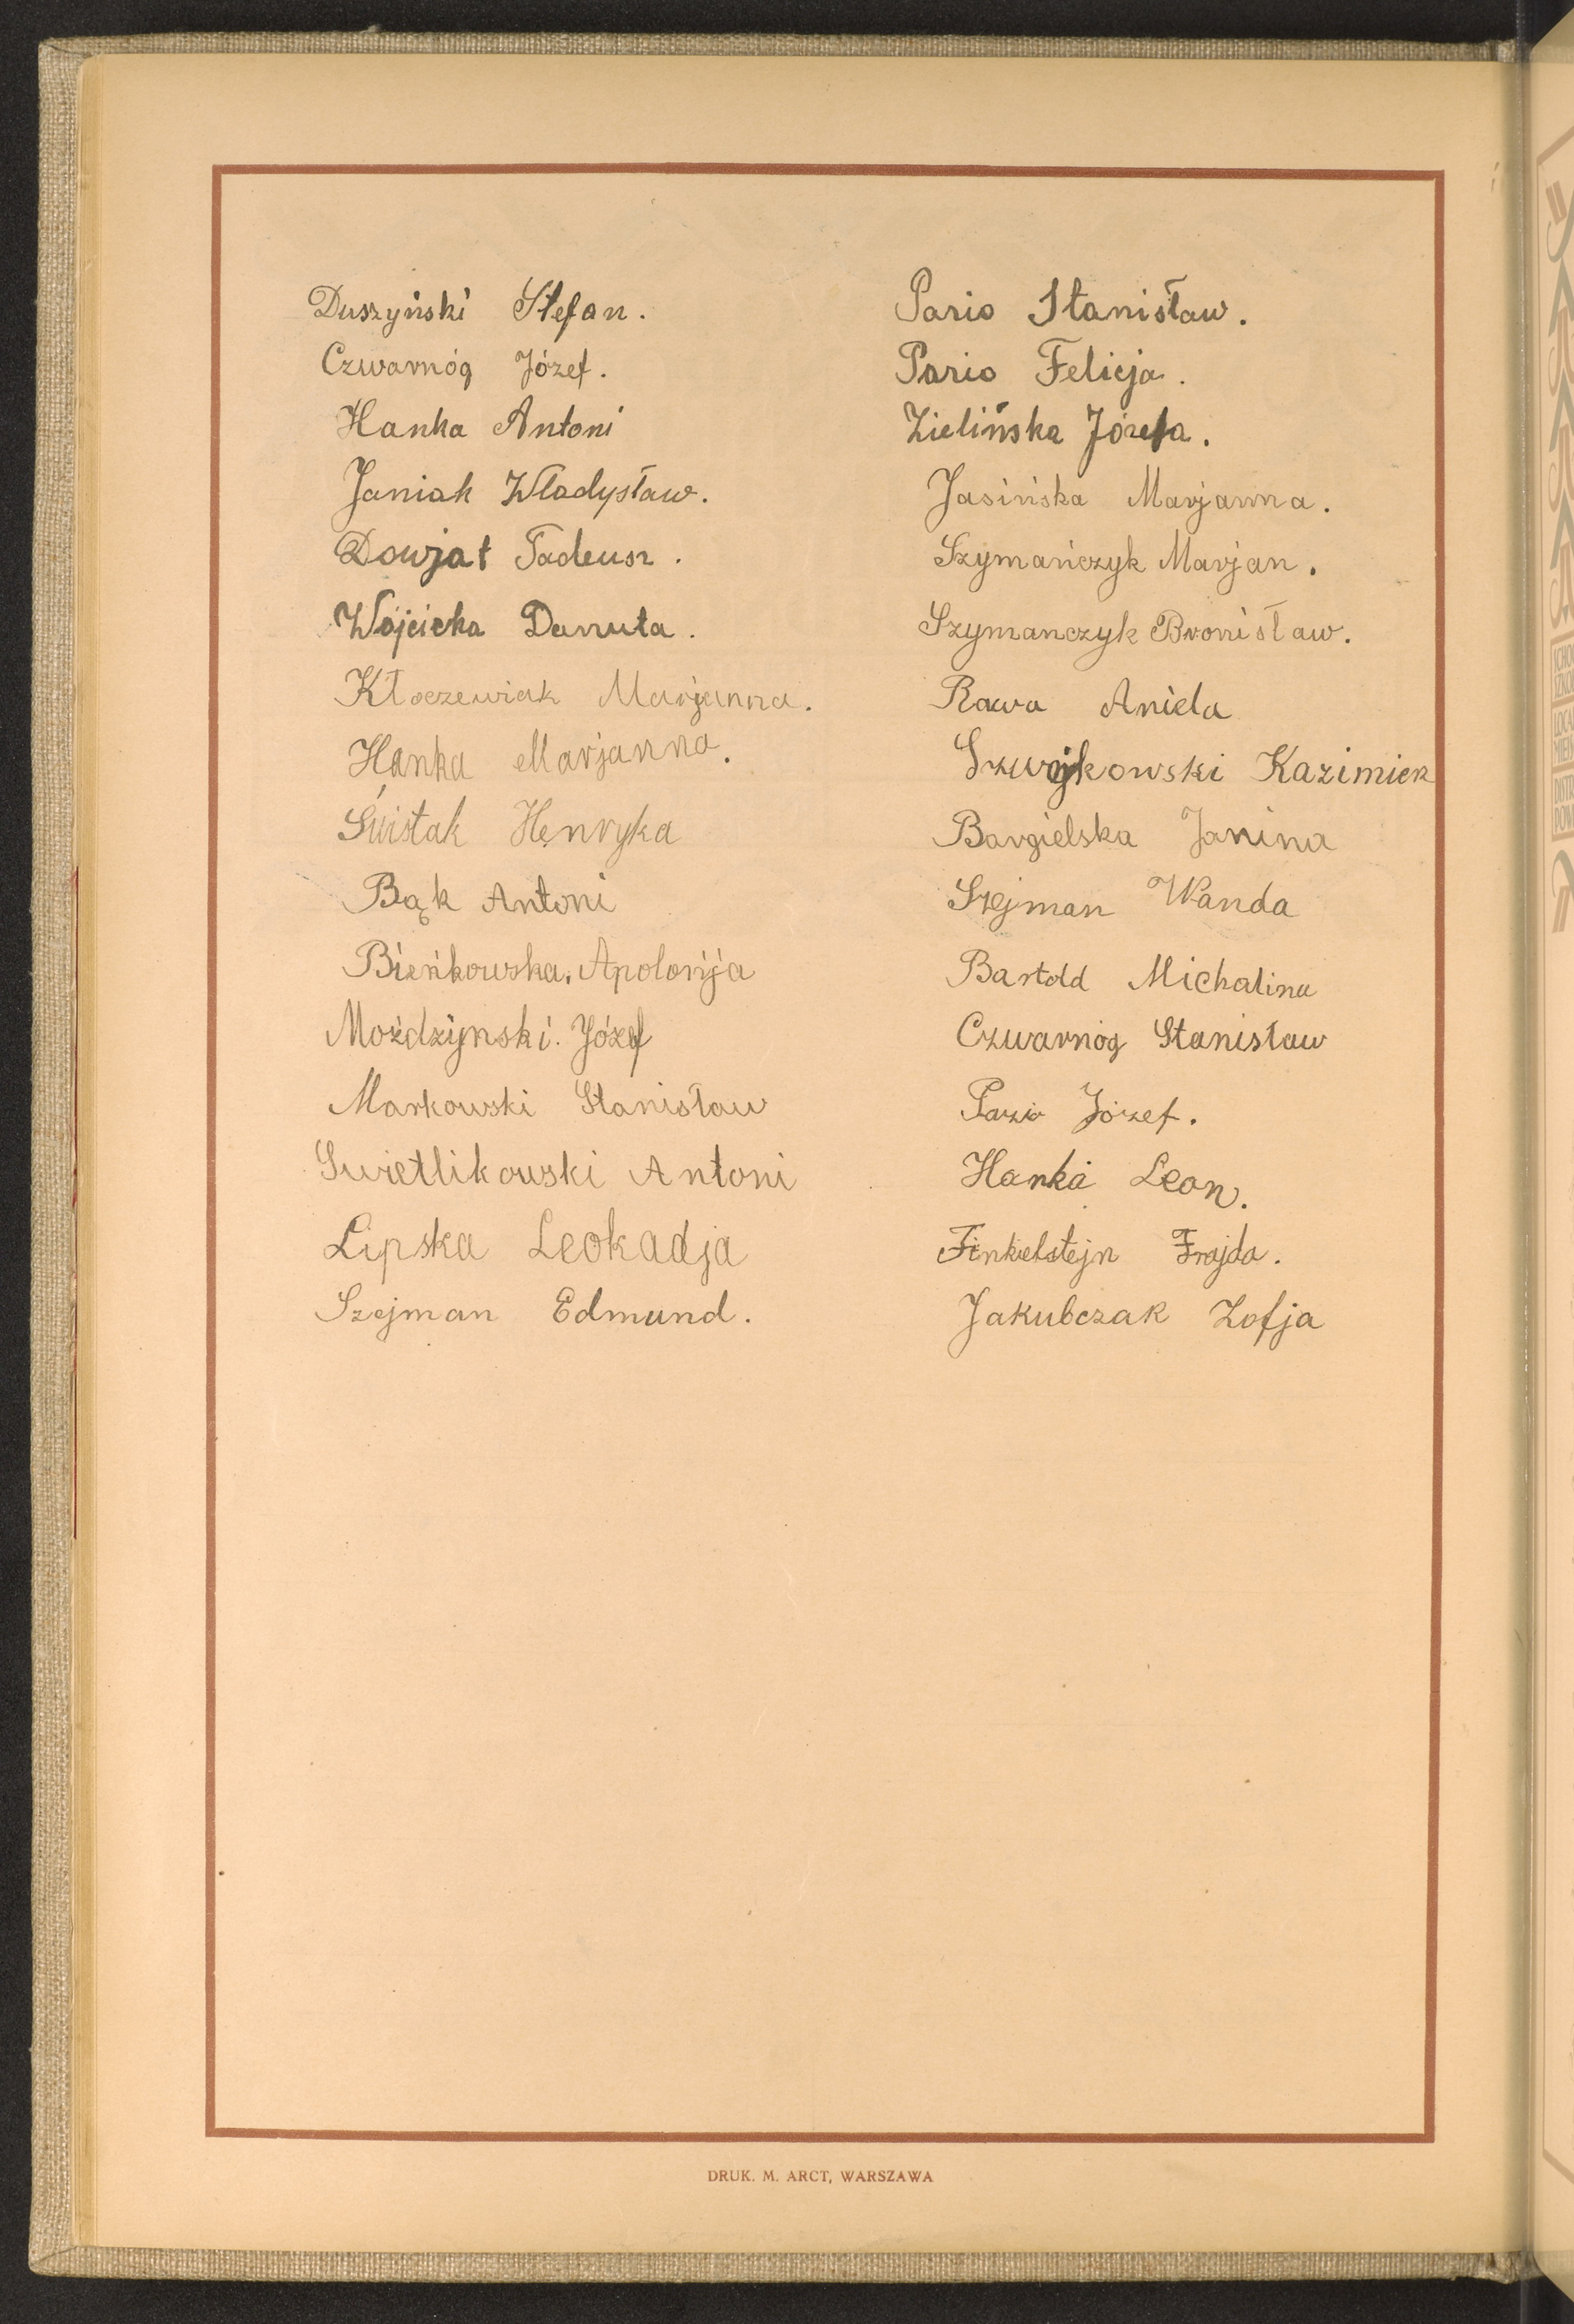 Duszyński Stefan.
Czwarnóg Józef.
Hanka Antoni
Janiak Władysław.
Dowjat Tadeusz.
Wójcicka Danuta.
Kłoczewiak Marjanna.
Hanka Marjanna.
Świstak Henryka
Bąk Antoni
Bieńkowska. Apolonija
Możdżyński. Józef
Markowski Stanisław
Swietlikowski Antoni
Lipska Leokadja
Szejman Edmund.
Pazio Stanisław.
Pazio Felicja.
Zielińska Józefa.
Jasińska Marjanna.
Szymańczyk Marjan.
Szymanczyk Bronisław.
Rawa Aniela
Kazimierz
Bargielska Janina
Szejman Wanda
Bartold Michalina
Czwarnóg Stanisław
Pazio Józef.
Hanka Leon.
Finkielstejn Frajda.
Jakubczak Zofja
DRUK. M. ARCT, WARSZAWA